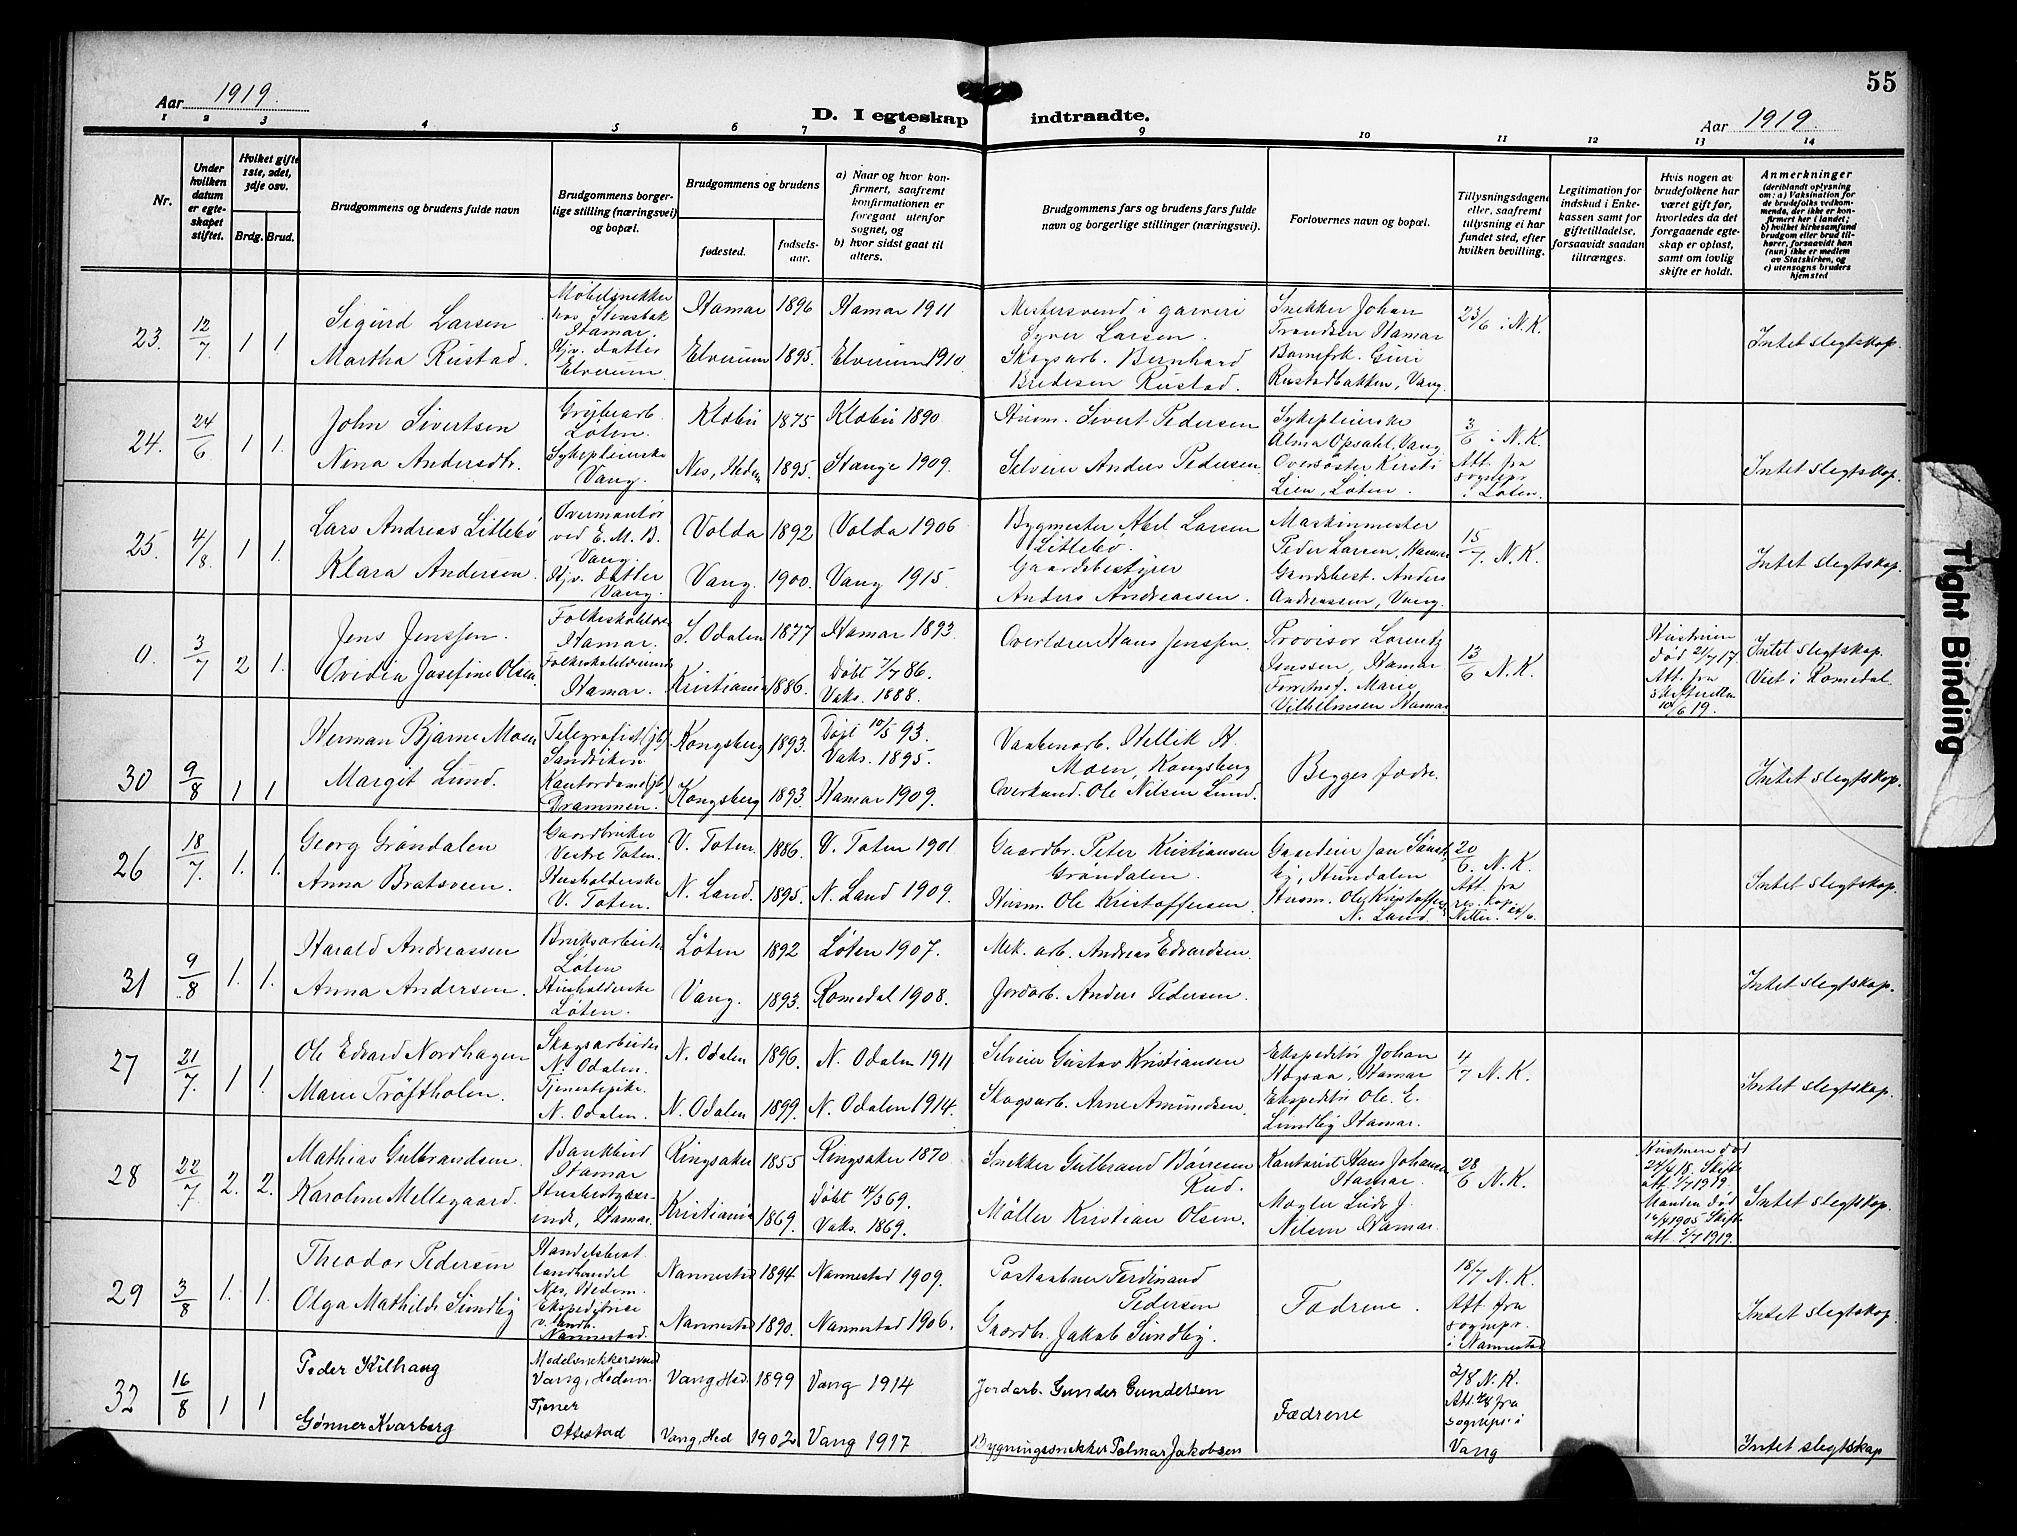 55
Aar 1919.
D. I egteskap indtraadte.
Aar 1919.
1 2 3 4 5 6 7 8 9 10 11 12 13 14
Nr.
Under hvilken datum er egteskapet stiftet.
Hvilket gifte 1ste, 2det, 3dje osv.
Brdg. Brud.
Brudgommens og brudens fulde navn
Brudgommens borgerlige stilling (næringsvei) og bopæl.
Brudgommens og brudens
fødested.
fødselsaar.
a) Naar og hvor konfirmert, saafremt konfirmationen er foregaat utenfor sognet, og
b) hvor sidst gaat til alters.
Brudgommens fars og brudens fars fulde navn og borgerlige stillinger (næringsvei).
Forlovernes navn og bopæl.
Tillysningsdagene eller, saafremt tillysning ei har fundet sted, efter hvilken bevilling.
Legitimation for indskud i Enkekassen samt for giftetilladelse, forsaavidt saadan tiltrænges.
Hvis nogen av brudefolkene har været gift før, hvorledes da det foregaaende egteskap er opløst, samt om lovlig skifte er holdt.
Anmerkninger
(deriblandt oplysning om: a) Vaksination for de brudefolks vedkommende, der ikke er konfirmert her i landet; b) hvilket kirkesamfund brudgom eller brud tilhører, forsaavidt han (hun) ikke er medlem av Statskirken, og c) utensogns bruders hjemsted
23. 12/7 1 1.
Sigurd Larsen
Møbelsnekker hos Stensbak Hamar.
Hamar 1896 Hamar 1911
Mestersvend i garveri Syver Larsen
Snekker Johan Trondsen Hamar
23/6 i N.K.
Martha Rustad.
Hjv. datter Elverum
Elverum 1895. Elverum 1910.
Skogsarb. Bernhard Bredesen Rustad.
Barnefrk. Guri Rustadbakken, Vang.
Intet slegtskap.
24. 24/6 1 1.
John Sivertsen
Løten.
Klæbu 1875 Klæbu 1890
Husm. Sivert Pedersen
Sykepleierske Alma Opsahl, Vang
3/6 i N.K.
Nena Andersdtr.
Sykepleierske Vang.
Nes, Hedm 1895. Stange 1909.
Selveier Anders Pedersen
Oversøster Kirsti Lien, Løten.
Att. fra sognepr. i Løten.
Intet slegtskap.
25. 4/8 1 1.
Lars Andreas Littlebø
Overmontør ved E.M.B. Vang.
Volda 1892 Volda 1906
Bygmester Abel Larsen Littlebø.
Maskinmester Peder Larsen, Hamar
15/7 N.K.
Klara Andersen.
Hjv. datter Vang.
Vang. 1900. Vang 1915.
Gaardsbestyrer Anders Andreassen.
Gaardsbest. Anders Andreassen, Vang.
Intet slegtskap.
0. 3/7 2 1.
Jens Jenssen.
Folkeskolelærer Hamar.
S. Odalen 1877 Hamar 1893.
Overlærer Hans Jenssen.
Provisor Lorentz Jenssen, Hamar
13/6 N.K.
Ovidia Josefine Olsen.
Folkeskolelærerinde Hamar.
Kristiania 1886. Døbt 7/7 86. Vaks. 1888.
Marie Vilhelmsen Hamar
Hustruen død 21/7 17. Att. fra skifteretten 10/6 19.
Intet slegtskap. Viet i Romedal.
30 9/8 1 1
Herman Bjarne Moen
Telegrafist (jb) Sandviken
Kongsberg 1893. Døpt 10/5 93. Vaks. 1895.
Vaabenarb. Hellik H. Moen, Kongsberg
Begges fedre.
Margit Lund.
Kontordame (jb.) Drammen.
Kongsberg 1893. Hamar 1909.
Overkond. Ole Nilsen Lund.
Intet slegtskap.
26 18/7. 1. 1.
Georg Grøndalen
Gaardbruker Vestre Toten.
V. Toten. 1886. V. Toten 1901
Gaardbr. Peter Kristiansen Grøndalen.
20/6. N.K.
Anna Bratsveen.
Husholderske V. Toten.
N. Land. 1895. N. Land 1909.
Husm. Ole Kristoffersen
Husm. Ole Kristoffersen N. Land.
Att. fra res. kap.
Intet slegtskap.
31 9/8 1. 1.
Harald Andreassen
Bruksarbeider Løten
Løten 1892 Løten 1907.
Mek. arb. Andreas Edvardsen.
Anna Andersen.
Husholderske Løten.
Vang. 1893. Romedal 1908.
Jordarb. Anders Pedersen.
Intet slegtskap.
27 21/7. 1 1.
Ole Edvard Nordhagen
Skogsarbeider N. Odalen.
N. Odalen 1896. N. Odalen 1911
Selveier Gustav Kristiansen
Ekspeditør Johan Hogsaa, Hamar
4/7 N.K.
Marie Trøftholen.
Tjenestepike. N. Odalen.
N. Odalen 1899. N. Odalen 1914.
Skogsarb. Arne Amundsen.
Ekspeditør Ole E. Lundby Hamar.
Intet slegtskap.
28 22/7 2. 2.
Mathias Gulbrandsen.
Bankbud Hamar
Ringsaker 1855 Ringsaker 1870
Snekker Gulbrand Børresen Rud.
Kontorist Hans Johansen Hamar.
28/6 N.K.
Karoline Mellegaard.
Husbestyrerinde, Hamar.
Kristiania 1869. Døbt 14/3 69. Vaks. 1869.
Møller Kristian Olsen.
Nilsen Hamar.
Hustruen død 24/4 18. Skifteatt. 1/7 1919. Manden død 12/4 1905 Skifteatt. 5/7 1919.
Intet slegtskap.
29 3/8 1. 1.
Theodor Pedersen
Handelsbest. landhandel Nes, Hedem.
Nannestad 1894 Nannestad 1909.
Postaabner Ferdinand Pedersen
Fædrene.
18/7 N.K.
Olga Mathilde Sundby
Ekspeditrice v. landh. Nannestad.
Nannestad 1890. Nannestad 1906.
Gaardbr. Jakob Sundby.
Att. fra sognepr. i Nannestad
Intet slegtskap.
32 16/8 1 1
Peder Kilhaug
Modelsnekkersvend Vang, Hedem.
Vang Hed. 1899 Vang 1914
Jordarb. Gunder Gundersen
Fædrene
2/8 N.K.
Gønner Kvarberg
Tjener Ottestad
Vang, Hed 1902 Vang 1917
Bygningssnekker Palmar Jakobsen
Att. 2/8 fra sognepr. i Vang
Intet slegtskap
Tight Binding